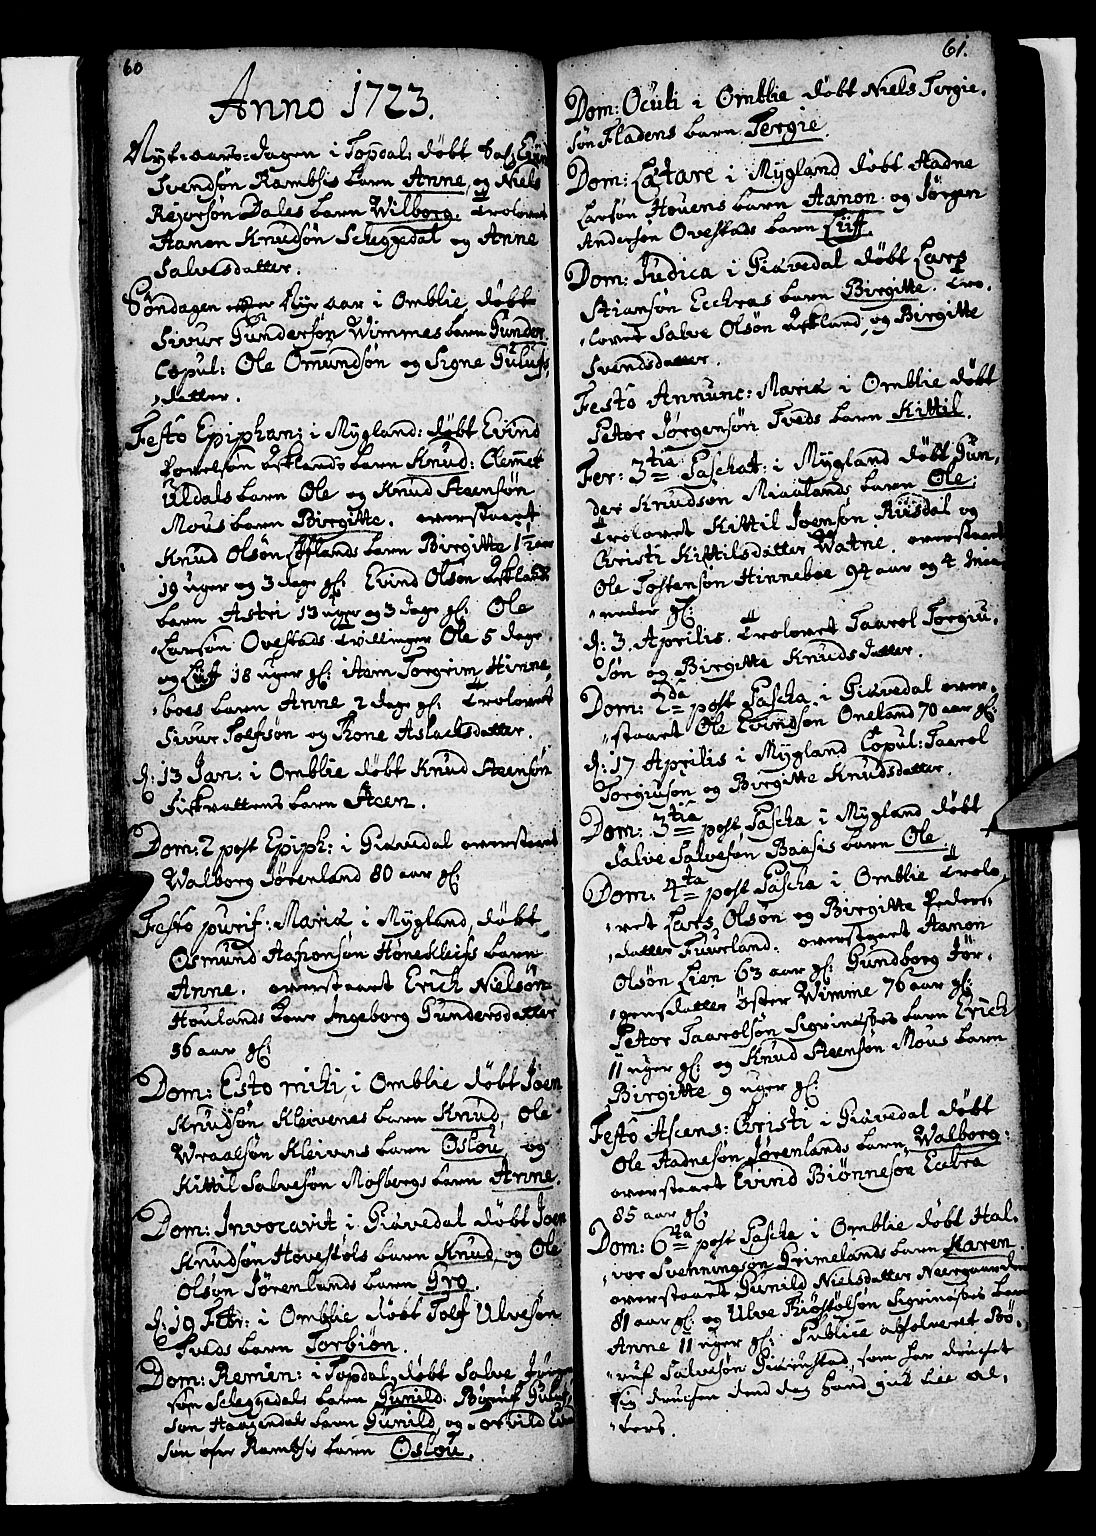 60
Anno 1723.
Nyt-aars-dagen i Topdal, døbt Sal:
Svendsøn Ramssis barn Anne, og Niels
Rejorsøn Dales barn Wilborg. Trolovet
Aanon Knudsøn Scheggedal og Anne
Salvesdatter.
Søndagen efter Nyt aar i Omblie, døbt
Sivur Gundersøn Wimmes barn Gunder.
Copul: Ole Omundsøn og Signe Gulufs
datter.
Festo Epiphan: i Mygland: døbt Evind
Povelsøn Ascklands barn Knud: Clemmet
Uldals barn Ole og Knud Steensøn
Mous barn Birgitte. overstaaet
Knud Olsøn barn Birgitte 1½ aar
19 uger og 3 dage gl: Evind Olsøn Asckland
barn Astri 13 uger og 3 dage gl: Ole
Larsøn Ovestads Tvillinger Ole 5 dage
og Liff 18 uger gl: item Torgrim Hinne-
boes barn Anne 2 dage gl: Trolovet
Sivur Tolfsøn og Tone Aslachsdatter.
d: 13 Jan: i Omblie døbt Knud Steensøn
Fiskvattens barn Steen.
Dom: 2 post Epiph: i Giøvedal overstaaet
Walborg Jørenland 80 aar gl:
Festo purif: Mariæ i Mygland, døbt
Osmund Aanonsøn Hønekleifs barn
Anne. overstaaet Erich Nielsøn
Houlands Ingeborg Gundersdatter
56 aar gl:
Dom: Esto mihi, i Omblie døbt Joen
Knudsøn Kleivenes barn Knud, Ole
Wraalsøn Kleivens barn Oslou, og
Kittil Salvesøn Mosbergs barn Anne.
Dom: Invocavit i Giøvedal døbt Joen
Knudsøn Hovestøls barn Knud, og Ole
Olsøn Jørenlands barn Gro.
d: 19 Febr: i Omblie døbt Tolf Ulvesøn
Tveds barn Torbiøn.
Dom: Remin: i Topdal, døbt Salve
søn Scheggedals barn Gunild. Gulufs
søn Haagendals barn Gunild, og
søn øfre Ramssis barn Oslou.
61.
Dom: Oculi i Omblie døbt Niels Tergie-
søn Fladens barn Tergie.
Dom: Lætare i Mygland døbt Aadne
Larsøn Houens barn Aanon. og Jørgen
Andersøn Ovestads barn Liff.
Dom: Judica i Giøvedal døbt Lars
Stiansøn Eckras barn Birgitte. Tro-
lovet Salve Olsøn Askland, og Birgitte
Svendsdatter.
Festo Annunc: Mariæ i Omblie døbt
Peter Jørgensøn Tveds barn Kittil.
Fer: 3tia Paschat: i Mygland døbt Gun-
der Knudsøn Miaalands barn Ole;
Trolovet Kittil Joensøn Riisdal og
Christi Kittilsdatter Watne. overstaaet
Ole Tostensøn Hinneboe 94 aar og 4 Maa-
neder gl:
d: 3 Aprilis. Trolovet Taarol Torgiu-
søn og Birgitte Knudsdatter.
Dom: 2da post Pascha i Giøvedal over-
staaet Ole Evindsøn Oneland 70 aar gl:
d: 17 Aprilis i Mygland Copul: Taarol
Torgiusøn og Birgitte Knudsdatter.
Dom: 3tia post Pascha i Mygland døbt
Salve Salvesøn Baasis barn Ole.
Dom: 4ta post Pascha i Omblie Trolo-
vet Lars Olsøn og Birgitte Peders-
datter Tuveland. overstaaet Aanon
Olsøn Lien 63 aar gl: Gundborg Jør-
gensdatter øster Wimme 76 aar gl:
Peter Taarolsøn Segrinæsses barn Erich
11 uger gl: og Knud Steensøn Mous barn
Birgitte 9 uger gl:
Festo Ascens: Christi i Giøvedal døbt
Ole Aadnesøn Jørenlands barn Walborg:
overstaaet Evind Biønnesøn Eckra
85 aar gl:
Dom: 6ta post Pascha i Omblie døbt Hal-
vor Svenningsøn Grimelands barn Karen
overstaaet Gunild Nielsdatter Neergaarden
81 aar gl: og Ulve Tiøstølsøn Segrinæsses barn
Anne 11 uger gl: Publicè absolveret Bø-
ruf Salvesøn som har drucket
sig drucken dend dag hand gik til al-
ters.